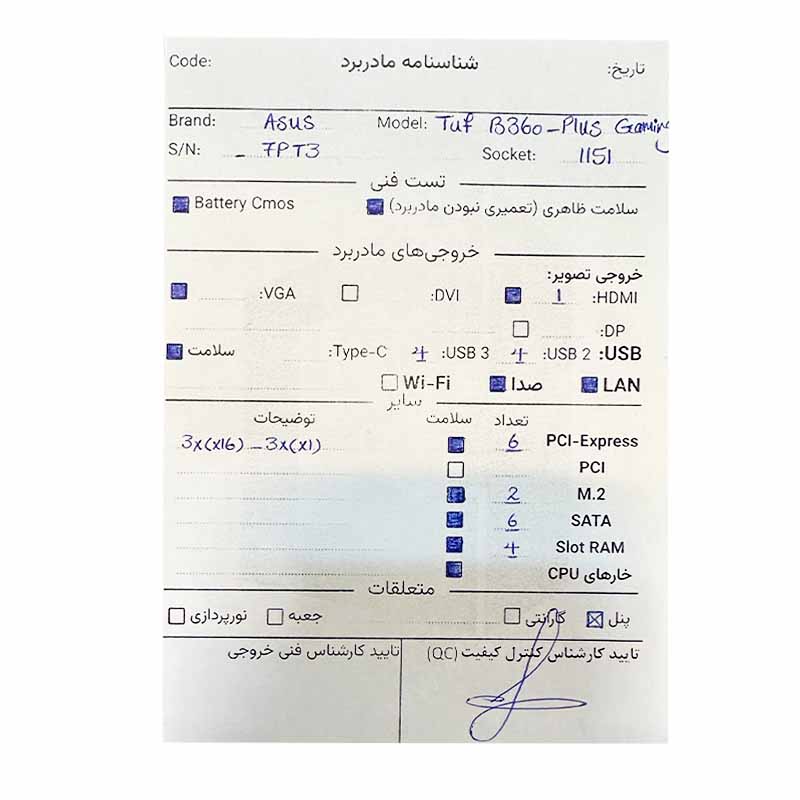 شناسنامه مادربرد
تاریخ: Code:
Brand: ASUS Model: Tuf B360-Plus Gaming
S/N: - 7PT3 Socket: 1151
تست فنی
سلامت ظاهری (تعمیری نبودن مادربرد) Battery Cmos
خروجی‌های مادربرد
خروجی تصویر:
HDMI: 1 DVI: VGA:
DP:
USB: USB 2: 4 USB 3: 4 Type-C: سلامت
LAN صدا Wi-Fi
سایر
تعداد سلامت توضیحات
PCI-Express 6 3x(x16) - 3x(x1)
PCI
M.2 2
SATA 6
Slot RAM 4
خارهای CPU
متعلقات
پنل گارانتی جعبه نورپردازی
تایید کارشناس کنترل کیفیت (QC) تایید کارشناس فنی خروجی